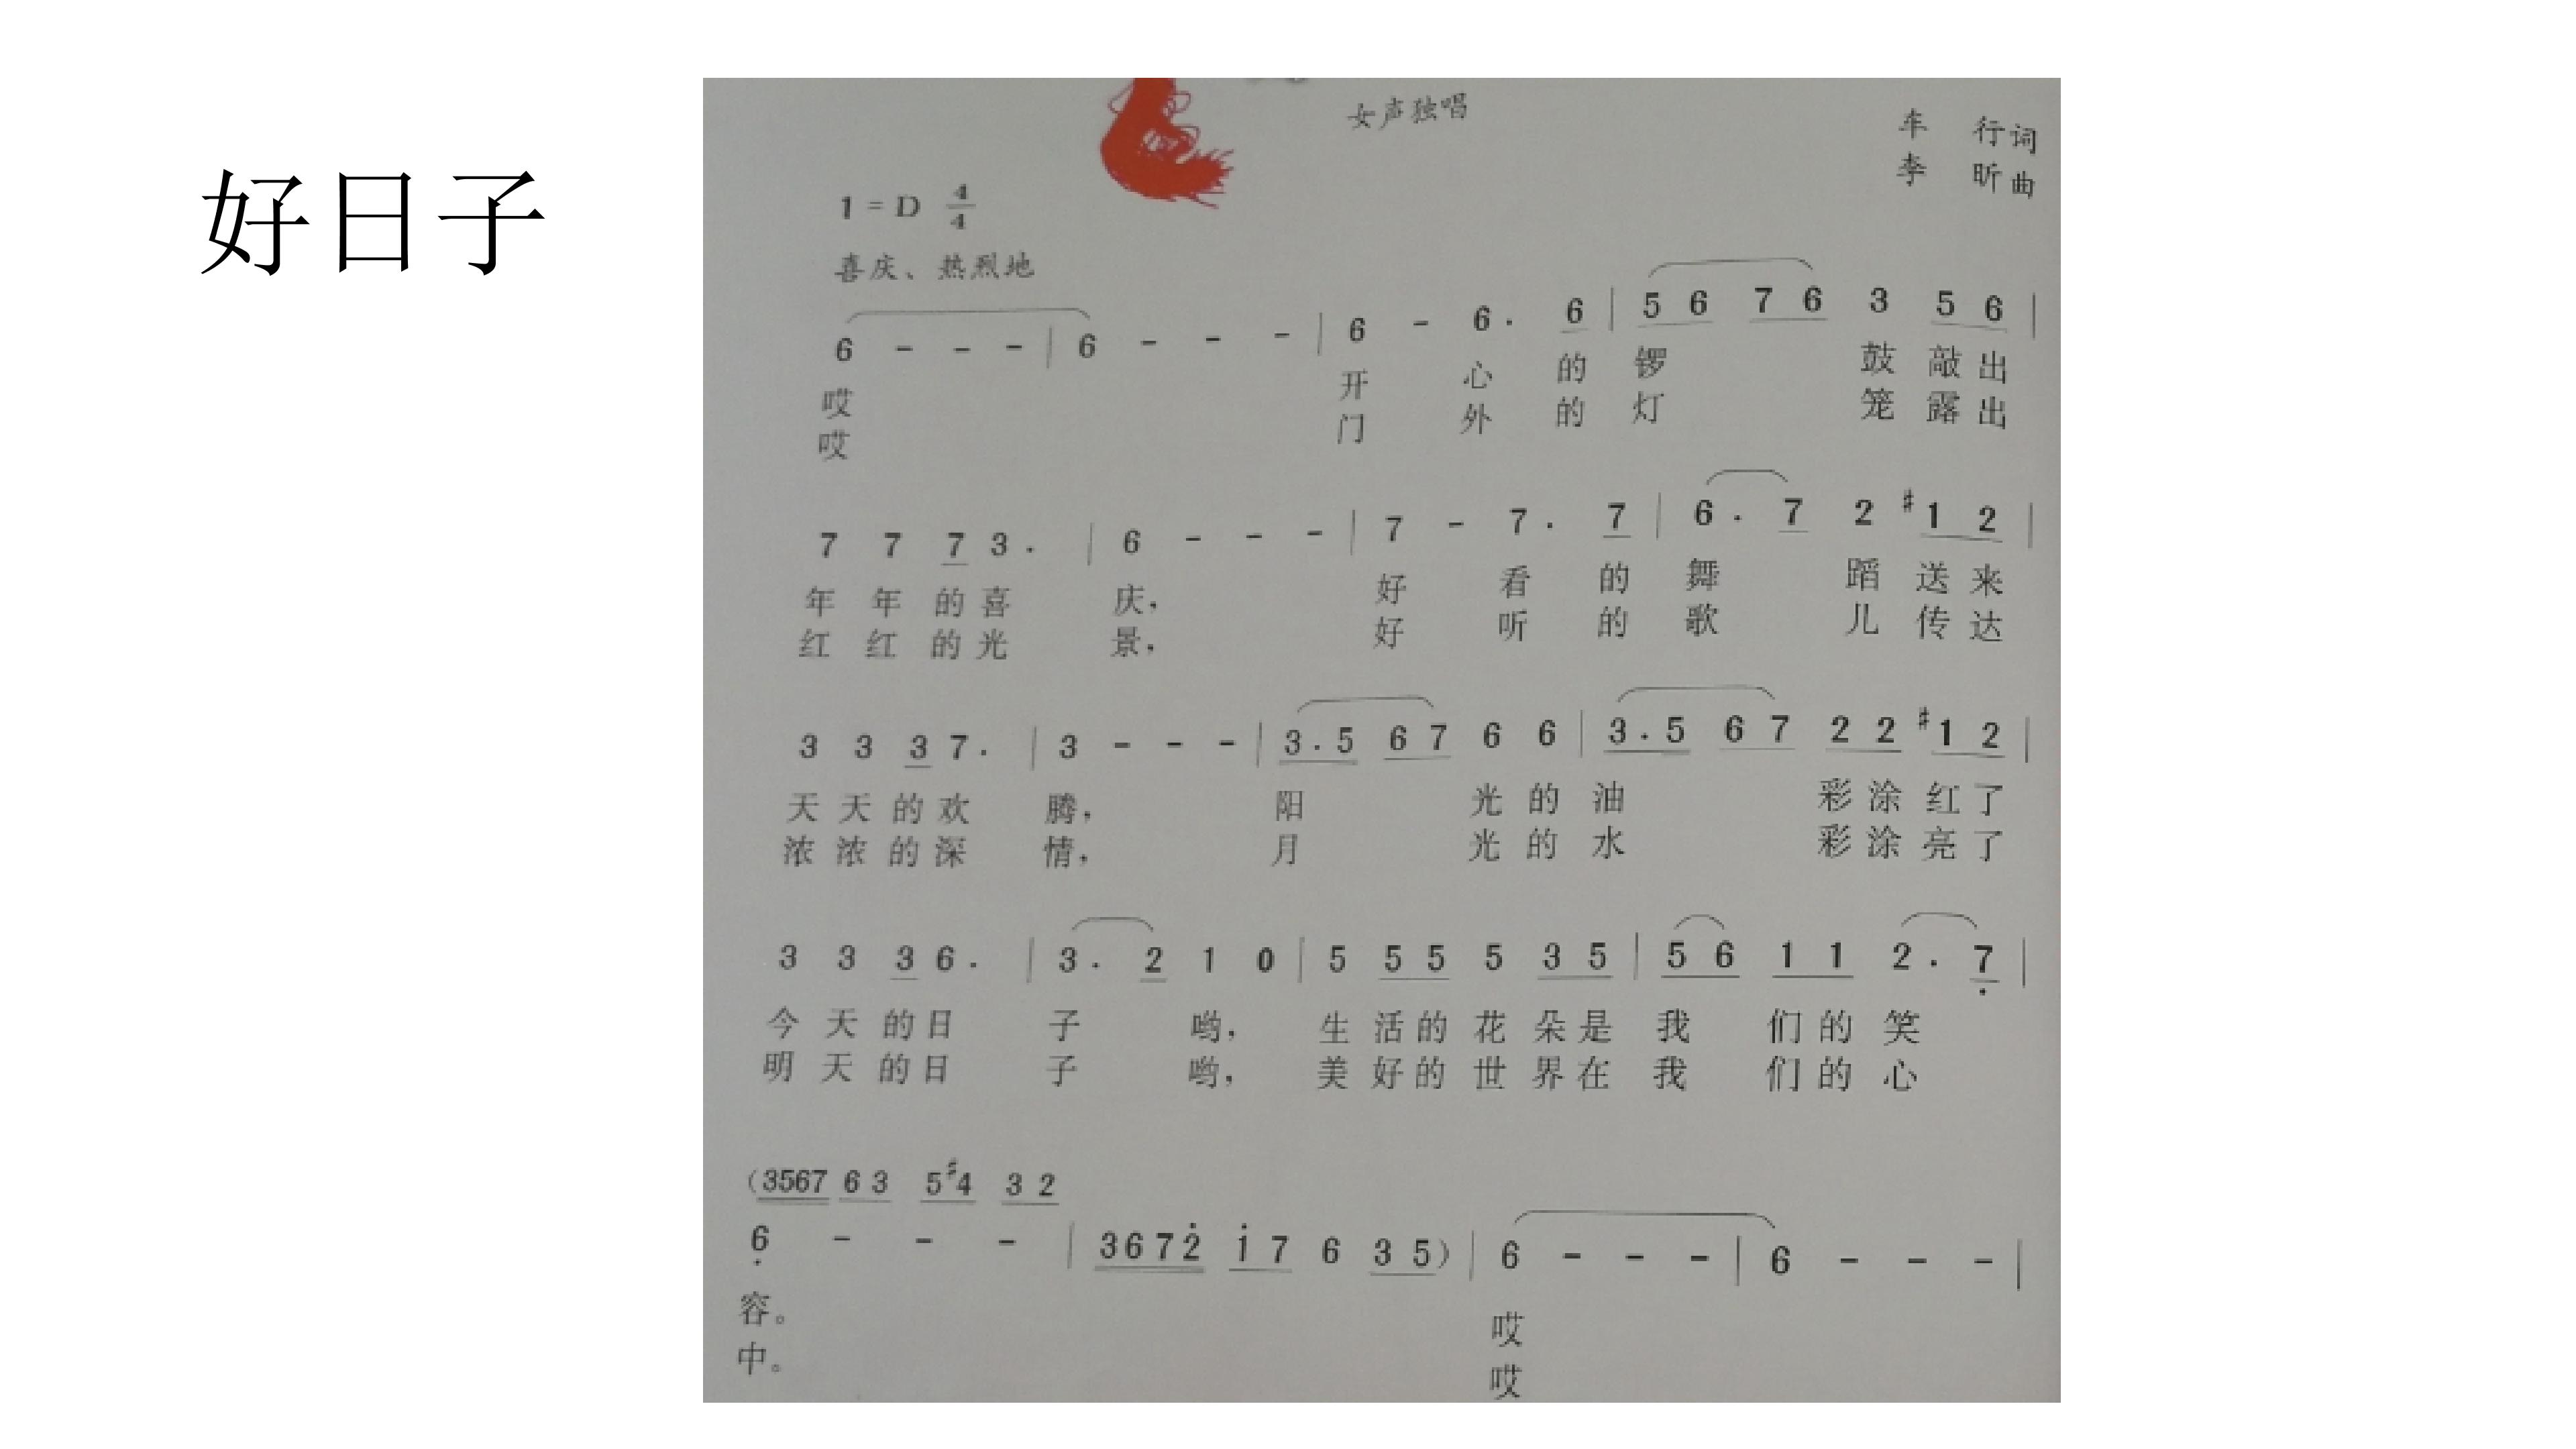 好日子
女声独唱
车 行 词
李 昕 曲
1 = D 4/4
喜庆、热烈地
6 - - - | 6 - - - | 6 - 6 . 6 | 5 6 7 6 3 5 6 |
哎 开 心 的 锣 鼓 敲 出
哎 门 外 的 灯 笼 露 出
7 7 7 3 . | 6 - - - | 7 - 7 . 7 | 6 . 7 2 #1 2 |
年 年 的 喜 庆, 好 看 的 舞 蹈 送 来
红 红 的 光 景, 好 听 的 歌 儿 传 达
3 3 3 7 . | 3 - - - | 3 . 5 6 7 6 6 | 3 . 5 6 7 2 2 #1 2 |
天 天 的 欢 腾, 阳 光 的 油 彩 涂 红 了
浓 浓 的 深 情, 月 光 的 水 彩 涂 亮 了
3 3 3 6 . | 3 . 2 1 0 | 5 5 5 5 3 5 | 5 6 1 1 2 . 7̣ |
今 天 的 日 子 哟, 生 活 的 花 朵 是 我 们 的 笑
明 天 的 日 子 哟, 美 好 的 世 界 在 我 们 的 心
(3567 6 3 5 #4 3 2
6̣ - - - | 3 6 7 2̇ 1̇ 7 6 3 5) | 6 - - - | 6 - - - |
容。 哎
中。 哎